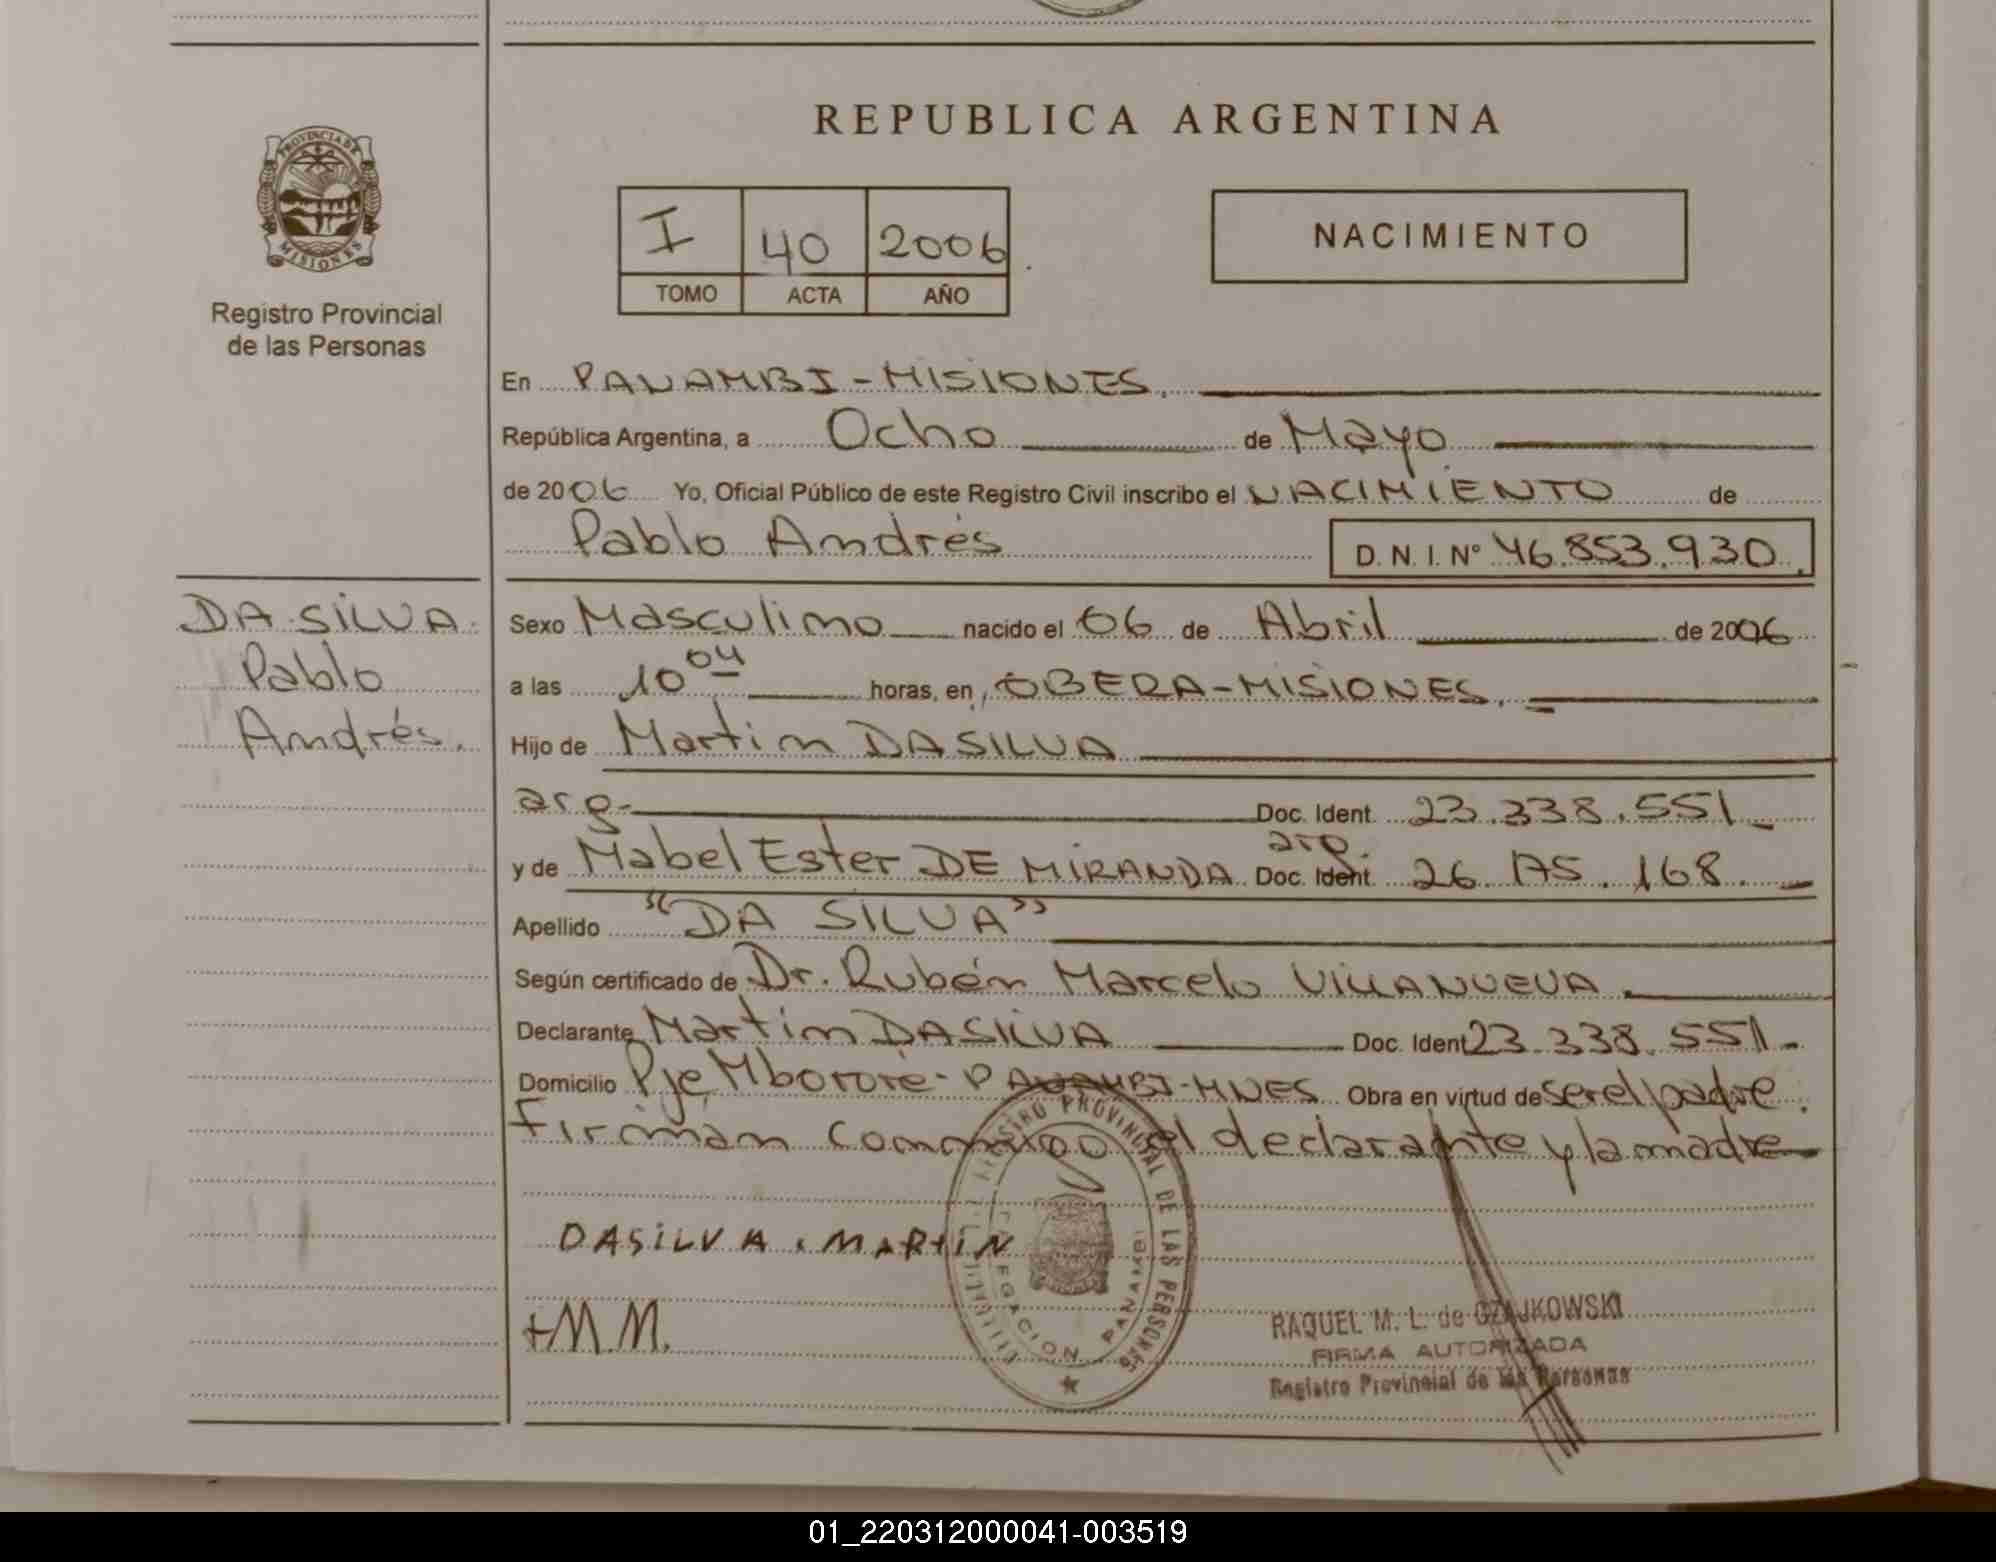 REPUBLICA ARGENTINA
PROVINCIA DE MISIONES
Registro Provincial
de las Personas
I 40 2006
TOMO ACTA AÑO
NACIMIENTO
En PANAMBI - MISIONES.
República Argentina, a Ocho de Mayo
de 2006 Yo, Oficial Público de este Registro Civil inscribo el NACIMIENTO de
Pablo Andrés D. N. I. Nº 46.853.930.
DA SILVA
Pablo
Andrés.
Sexo Masculino nacido el 06 de Abril de 2006
a las 10 04 horas, en OBERA - MISIONES.
Hijo de Martin DA SILVA
arg. Doc. Ident. 23.338.551
y de Mabel Ester DE MIRANDA arg. Doc. Ident. 26.175.168.
Apellido "DA SILVA"
Según certificado de Dr. Rubén Marcelo VILLANUEVA.
Declarante Martin DA SILVA Doc. Ident 23.338.551.
Domicilio Pje Mborore - PANAMBI - MNES Obra en virtud de ser el padre.
Firman conmigo el declarante y la madre
DASILVA. MARTiN
M.M.
REGISTRO PROVINCIAL DE LAS PERSONAS
DELEGACION PANAMBI
RAQUEL M. L. de CZAJKOWSKI
FIRMA AUTORIZADA
Registro Provincial de las Personas
01_220312000041-003519